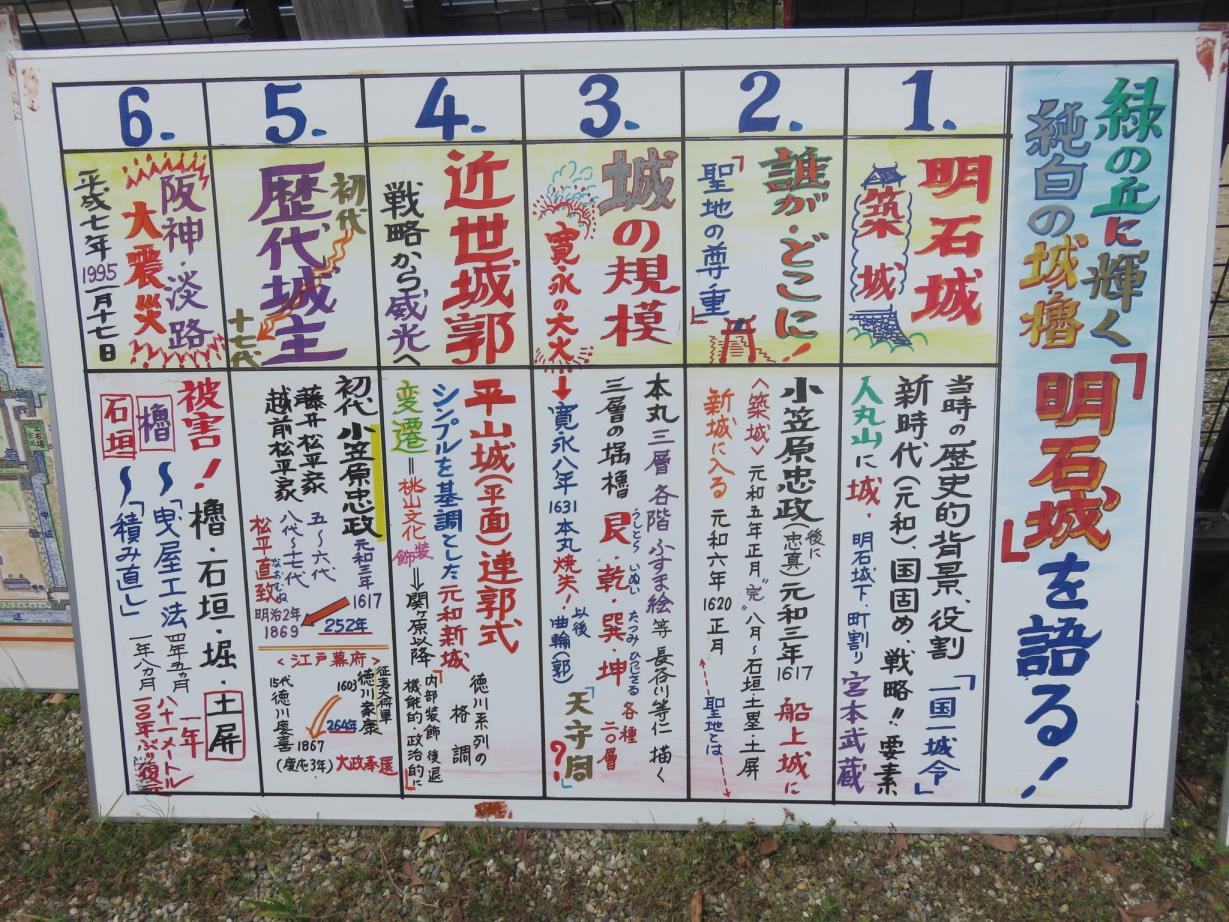 緑の丘に輝く
純白の城・櫓
「明石城」を語る！
1.
明石城
築城
当時の歴史的背景、役割「一国一城令」
新時代(元和)、国固め、戦略!!要素
人丸山に城・明石城下・町割り 宮本武蔵
2.
誰が・どこに！
「聖地の尊重」
小笠原忠政(後に忠真)元和三年1617 船上城に
〈築城〉元和五年正月〝完〟八月〜石垣・土塁・土屏
新城に入る 元和六年1620正月
聖地とは
3.
城の規模
寛永の大火
本丸三層各階ふすま絵等 長谷川等仁描く
三層の堝櫓 艮・乾・巽・坤 各種二〇層
うしとら いぬい たつみ ひつじさる
寛・永八年1631本丸焼失！以後曲輪(郭)「天守閣?!」
4.
近世城郭
戦略から威光へ
平山城(平面)連郭式
シンプルを基調とした元和新城 「徳川系列の格調
変遷＝桃山文化 装飾⇒関ヶ原以降 内部装飾後退 機能的・政治的に」
5.
初代
歴代城主
十七代
初代小笠原忠政 元和三年1617
藤井松平家 五〜六代
越前松平家 八代〜十七代
松平直致 なおむね
明治2年
1869
252年
＜江戸幕府＞
征夷大将軍
徳川家康
1603
264年
15代
徳川慶喜
1867
(慶応3年)
大政奉還
6.
阪神・淡路
大震災
平成七年1995一月十七日
被害！櫓・石垣・堀・土屏
櫓〜「曳屋工法 四年五ヵ月 一年
石垣〜「積み直し」 一年八ヵ月 八十一メートル